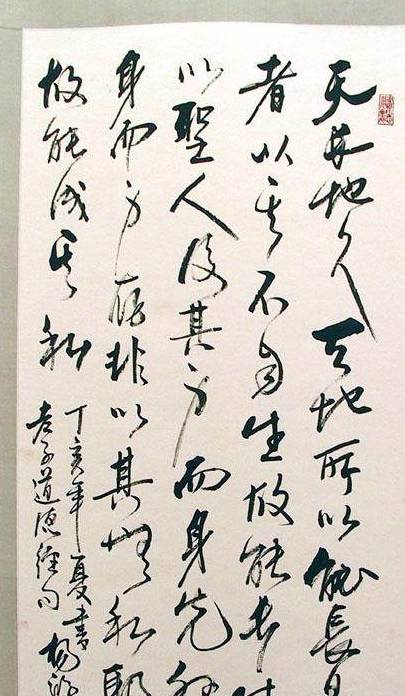 天長地久天地所以能長
者以其不自生故能長
以聖人後其身而身先外
身而身存非以其無私耶
故能成其私
丁亥年夏書
老子道德經句 楊